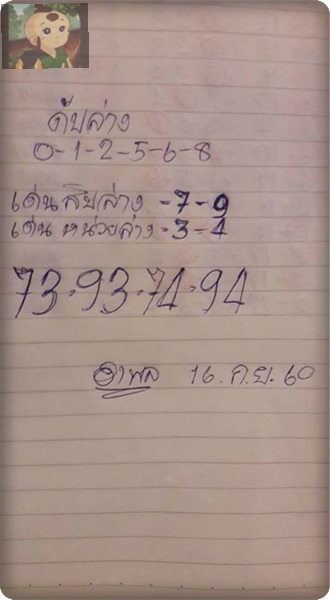 ดับล่าง
0-1-2-5-6-8
เด่นสิบล่าง -7-9
เด่นหน่วยล่าง -3-4
73-93-74-94
อำพล 16.ก.ย.60